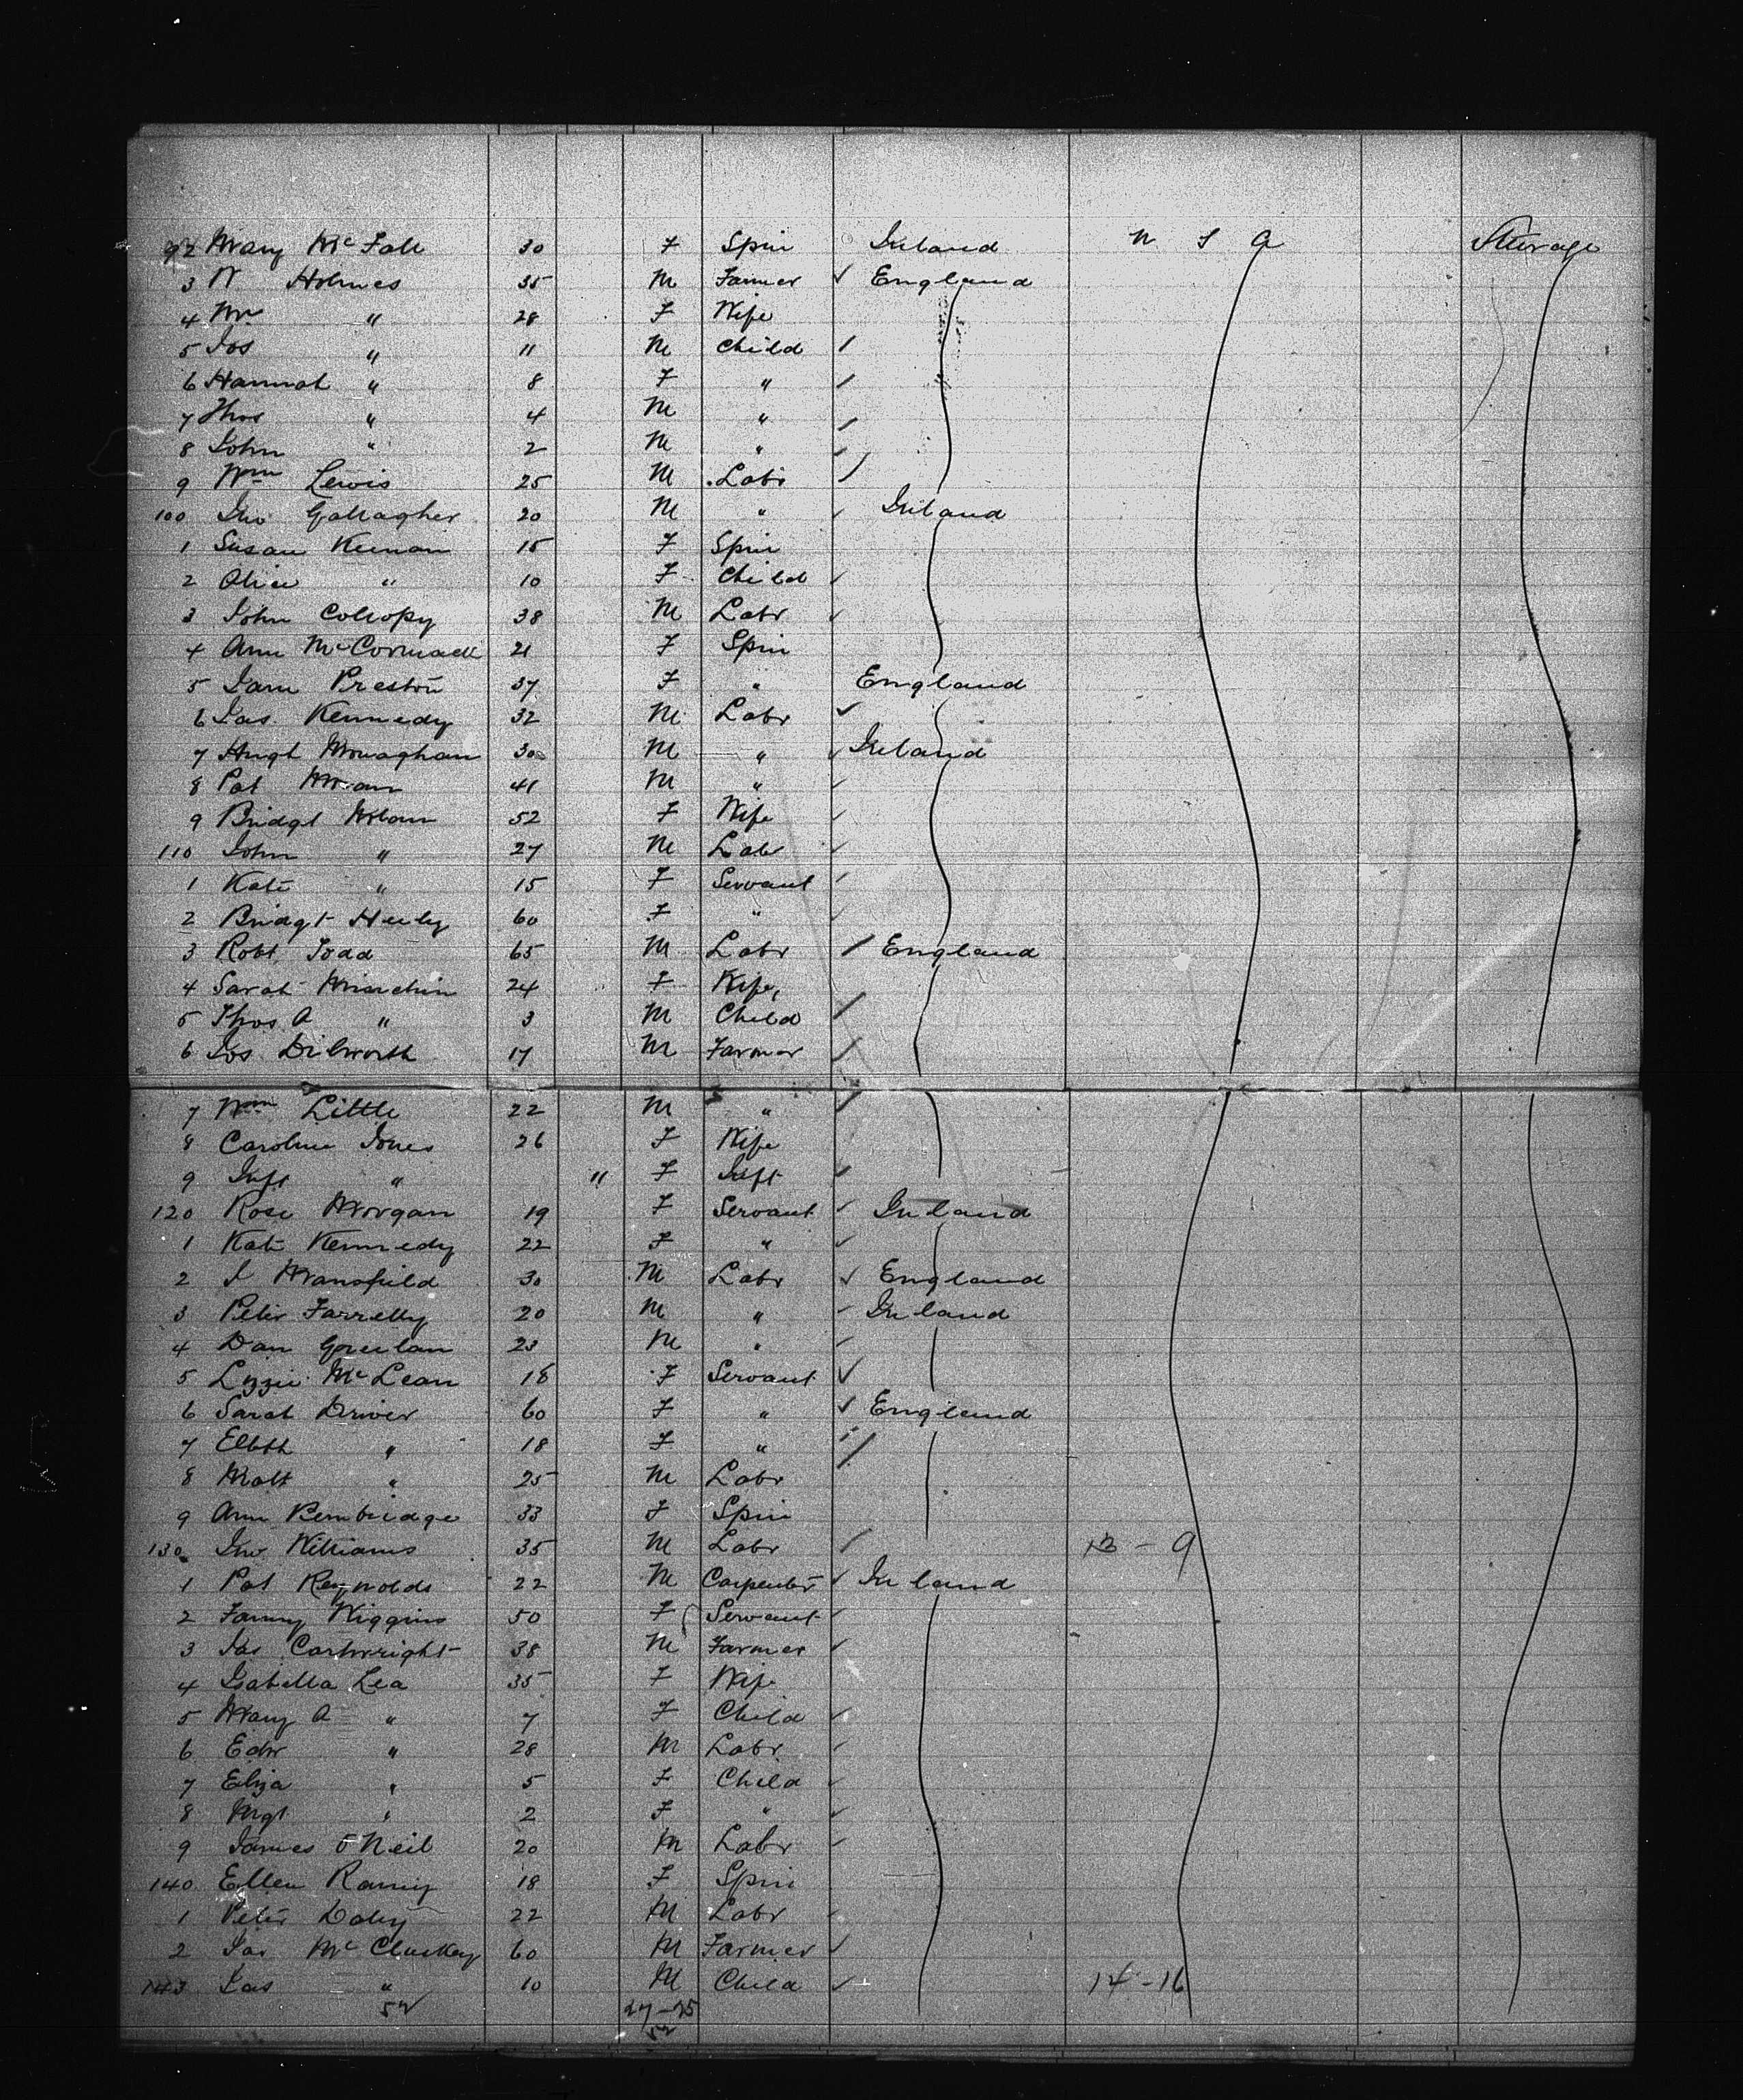 92 Mary McFall 30 F Spin Ireland U S A Steerage
3 W Holmes 35 M Farmer ✓ England
4 Mrs " 28 F Wife
5 Jos " 11 M Child /
6 Hannah " 8 F " /
7 Thos " 4 M " /
8 John " 2 M " /
9 Wm Lewis 25 M Labr /
100 Jno Gallagher 20 M " ✓ Ireland
1 Susan Keenan 15 F Spin
2 Alice " 10 F Child ✓
3 John Collopy 38 M Labr ✓
4 Ann McCormack 21 F Spin
5 Jane Preston 37 F " England
6 Jas Kennedy 32 M Labr ✓
7 Hugh Monaghan 30 M " ✓ Ireland
8 Pat Moran 41 M " ✓
9 Bridgt 52 F Wife ✓
110 John " 27 M Labr ✓
1 Kate " 15 F Servant ✓
2 Bridgt Heely 60 F " ✓
3 Robt Todd 65 M Labr / England
4 Sarah Minchin 24 F Wife
5 Thos A " 3 M Child /
6 Jos Dilworth 17 M Farmer /
7 Wm Little 22 M " /
8 Caroline Jones 26 F Wife
9 Inft " " F Inft /
120 Rose Morgan 19 F Servant ✓ Ireland
1 Kate Kennedy 22 F " ✓
2 J Mansfield 30 M Labr ✓ England
3 Peter Farrelly 20 M " ✓ Ireland
4 Dan Greelan 23 M " ✓
5 Lizzie McLean 18 F Servant ✓
6 Sarah Driver 60 F " ✓ England
7 Elbth " 18 F " /
8 Matt " 25 M Labr
9 Ann Bembridge 33 F Spin
130 Jno Williams 35 M Labr / 13 - 9
1 Pat Reynolds 22 M Carpenter ✓ Ireland
2 Fanny Wiggins 50 F Servant ✓
3 Jas Cartwright 38 M Farmer ✓
4 Isabella Lea 35 F Wife
5 Mary A " 7 F Child ✓
6 Edw " 28 M Labr ✓
7 Eliza " 5 F Child ✓
8 Mgt " 2 F " ✓
9 James O'Neil 20 M Labr ✓
140 Ellen Ramy 18 F Spin
1 Peter Daley 22 M Labr ✓
2 Jas McCluskey 60 M Farmer ✓
143 Jas " 10 M Child ✓ 14 - 16
52 27-25
52